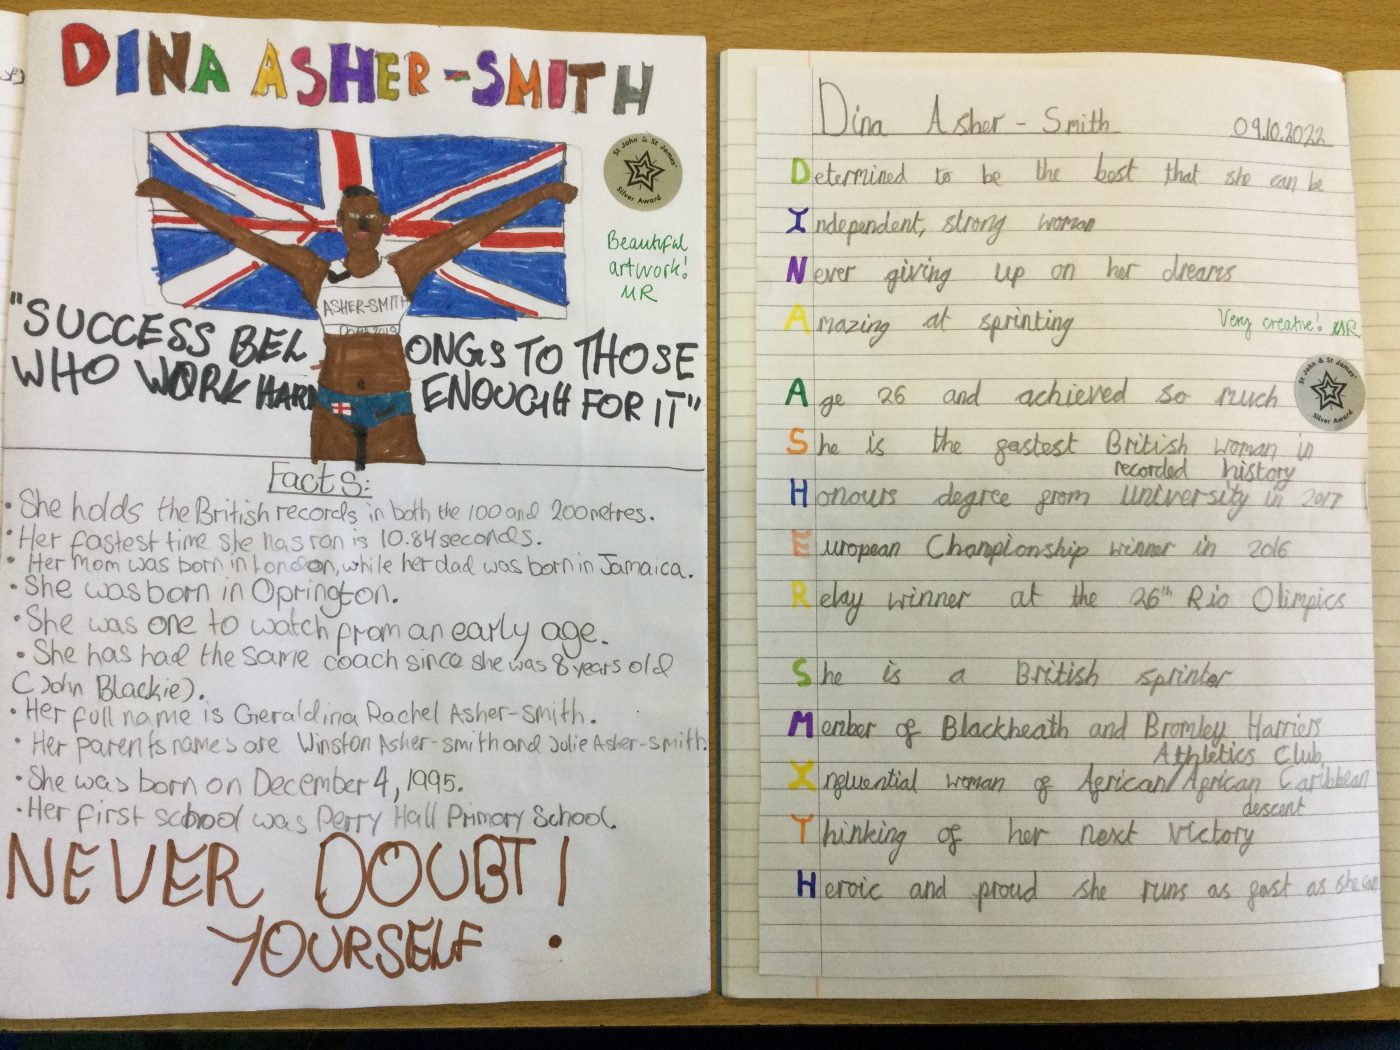 DINA ASHER-SMITH
St John & St James'
Silver Award
Beautiful
artwork!
MR
ASHER-SMITH
Doha 2019
"SUCCESS BELONGS TO THOSE
WHO WORK HARD ENOUGH FOR IT"
Facts:
• She holds the British records in both the 100 and 200 metres.
• Her fastest time she has ran is 10.84 seconds.
• Her Mom was born in London, while her dad was born in Jamaica.
• She was born in Oprington.
• She was one to watch from an early age.
• She has had the same coach since she was 8 years old
(John Blackie).
• Her full name is Geraldina Rachel Asher-smith.
• Her parents names are Winston Asher-smith and Julie Asher-smith.
• She was born on December 4, 1995.
• Her first school was Perry Hall Primary School.
NEVER DOUBT!
YOURSELF.
Dina Asher-Smith 09.10.2022
Determined to be the best that she can be
Independent, strong woman
Never giving up on her dreams
Amazing at sprinting
Very creative! MR
Age 26 and achieved so much
St John & St James'
Silver Award
She is the fastest British woman in
recorded history
Honours degree from university in 2017
European Championship winner in 2016
Relay winner at the 26th Rio Olimpics
She is a British sprinter
Member of Blackheath and Bromley Harriers
Athletics Club
Influential woman of African/African Caribbean
descent
Thinking of her next victory
Heroic and proud she runs as fast as she can